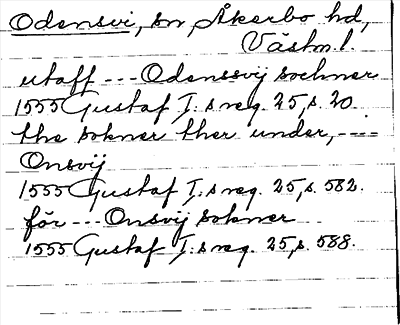 Odensvi, sn, Åkerbo hd,
Västm. l.
utaff --- Odenssvij sochner
1555 Gustaf I:s reg. 25, s. 20.
the sokner ther under, ----
Onsvij
1555 Gustaf I:s reg. 25, s. 582.
för --- Onsvij sokner
1555 Gustaf I:s reg. 25, s. 588.